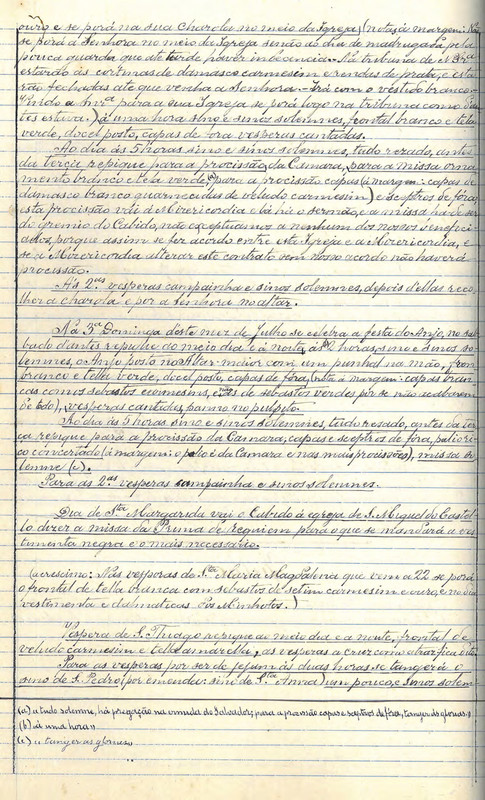 ouro, e se porá na sua charola no meio da Igreja, (nota á margem: Não
se porá a Senhora no meio da Igreja senão do dia de madrugada, pela
pouca guarda que até tarde haver
estarão as cortinas de damasco carmesim e rendas de prata, e esta-
rão fechadas até que venha a Senhora. Irá com o vestido branco.
Vindo a Snrª para a sua Igreja se porá logo na tribuna como d'an-
tes estiva.) á uma hora sino e sinos solemnes, frontal branco e tela
verde, docel posto, capas de fóra vesperas cantadas.
Ao dia ás 5 horas sino e sinos solemnes, tudo rezado, antes
da terça repique para a procissão da Camara, para a missa orna-
mento branco e tela verde, (a) para a procissão capas (á margem: capas de
damasco branco guarnecidas de veludo carmesim) e sceptros de fóra,
esta procissão vai á Misericordia e lá há o sermão, e a missa ha de ser
do gremio do Cabido, não exceptuamos a nenhum dos nossos benefici-
ados, porque assim se fez acordo entre esta Igreja e a Misericordia, e
se a Misericordia alterar este contrato sem nosso acordo não haverá
procissão.
Ás 2ªs vesperas campainha e sinos solemnes, depois d'ellas reco-
lher a charola e por a Senhora no altar.
Na 3ª Dominga d'este mez de Julho se celebra a festa do Anjo, no sab-
bado d'antes repique do meio dia e á noite, ás 2 horas, sino e sinos so-
lemnes, o Anjo posto no Altar-meior com um punhal na mão, fron
branco e tella verde, docel posto, capas de fóra, (nota á margem: capas bran-
cas com os sebastos carmesins, e as de sebastos verdes por se não acabarem
de todo), vesperas cantadas, panno no pulpito.
Ao dia ás 5 horas sino e sinos solemnes, tudo resado, antes da ter-
ça repique para a procissão da Camara, capas e sceptros de fóra, palio ri-
co concertado (á margem: o palio é da Camara e nas mais procissões), missa so-
lemne (c).
Para as 2.as vesperas campainha e sinos solemnes.
Dia de Sta Margarida vai o Cabido á egreja de S. Miguel do Castel-
lo dizer a missa da Prima de requiem para o que se manda a ves-
timenta negra e o mais necessario.
(acrescimo: Nas vesporas de Sta Maria Magdalena que vem a 22 se porá
o frontal de tella branca com sebastos de setim carmesim e ouro, e no dia
vestimenta e dalmaticas dos Minhotos.)
Vespera de S. Thiago repique ao meio dia e a noute, frontal de
veludo carmesim e tella amarella, as vesperas a cruz como
Para as vesperas por ser de jejum ás duas horas se tangerá o
sino de S. Pedro (por emenda: sino de Sta Anna) um pouco, e sinos solem-
(a) a tudo solemne, há pregação na ermida do Salvador, para a procissão capas e sceptros de fóra, tanger ás glorias. »
(b) « á uma hora »
(c) « tanger as glorias »